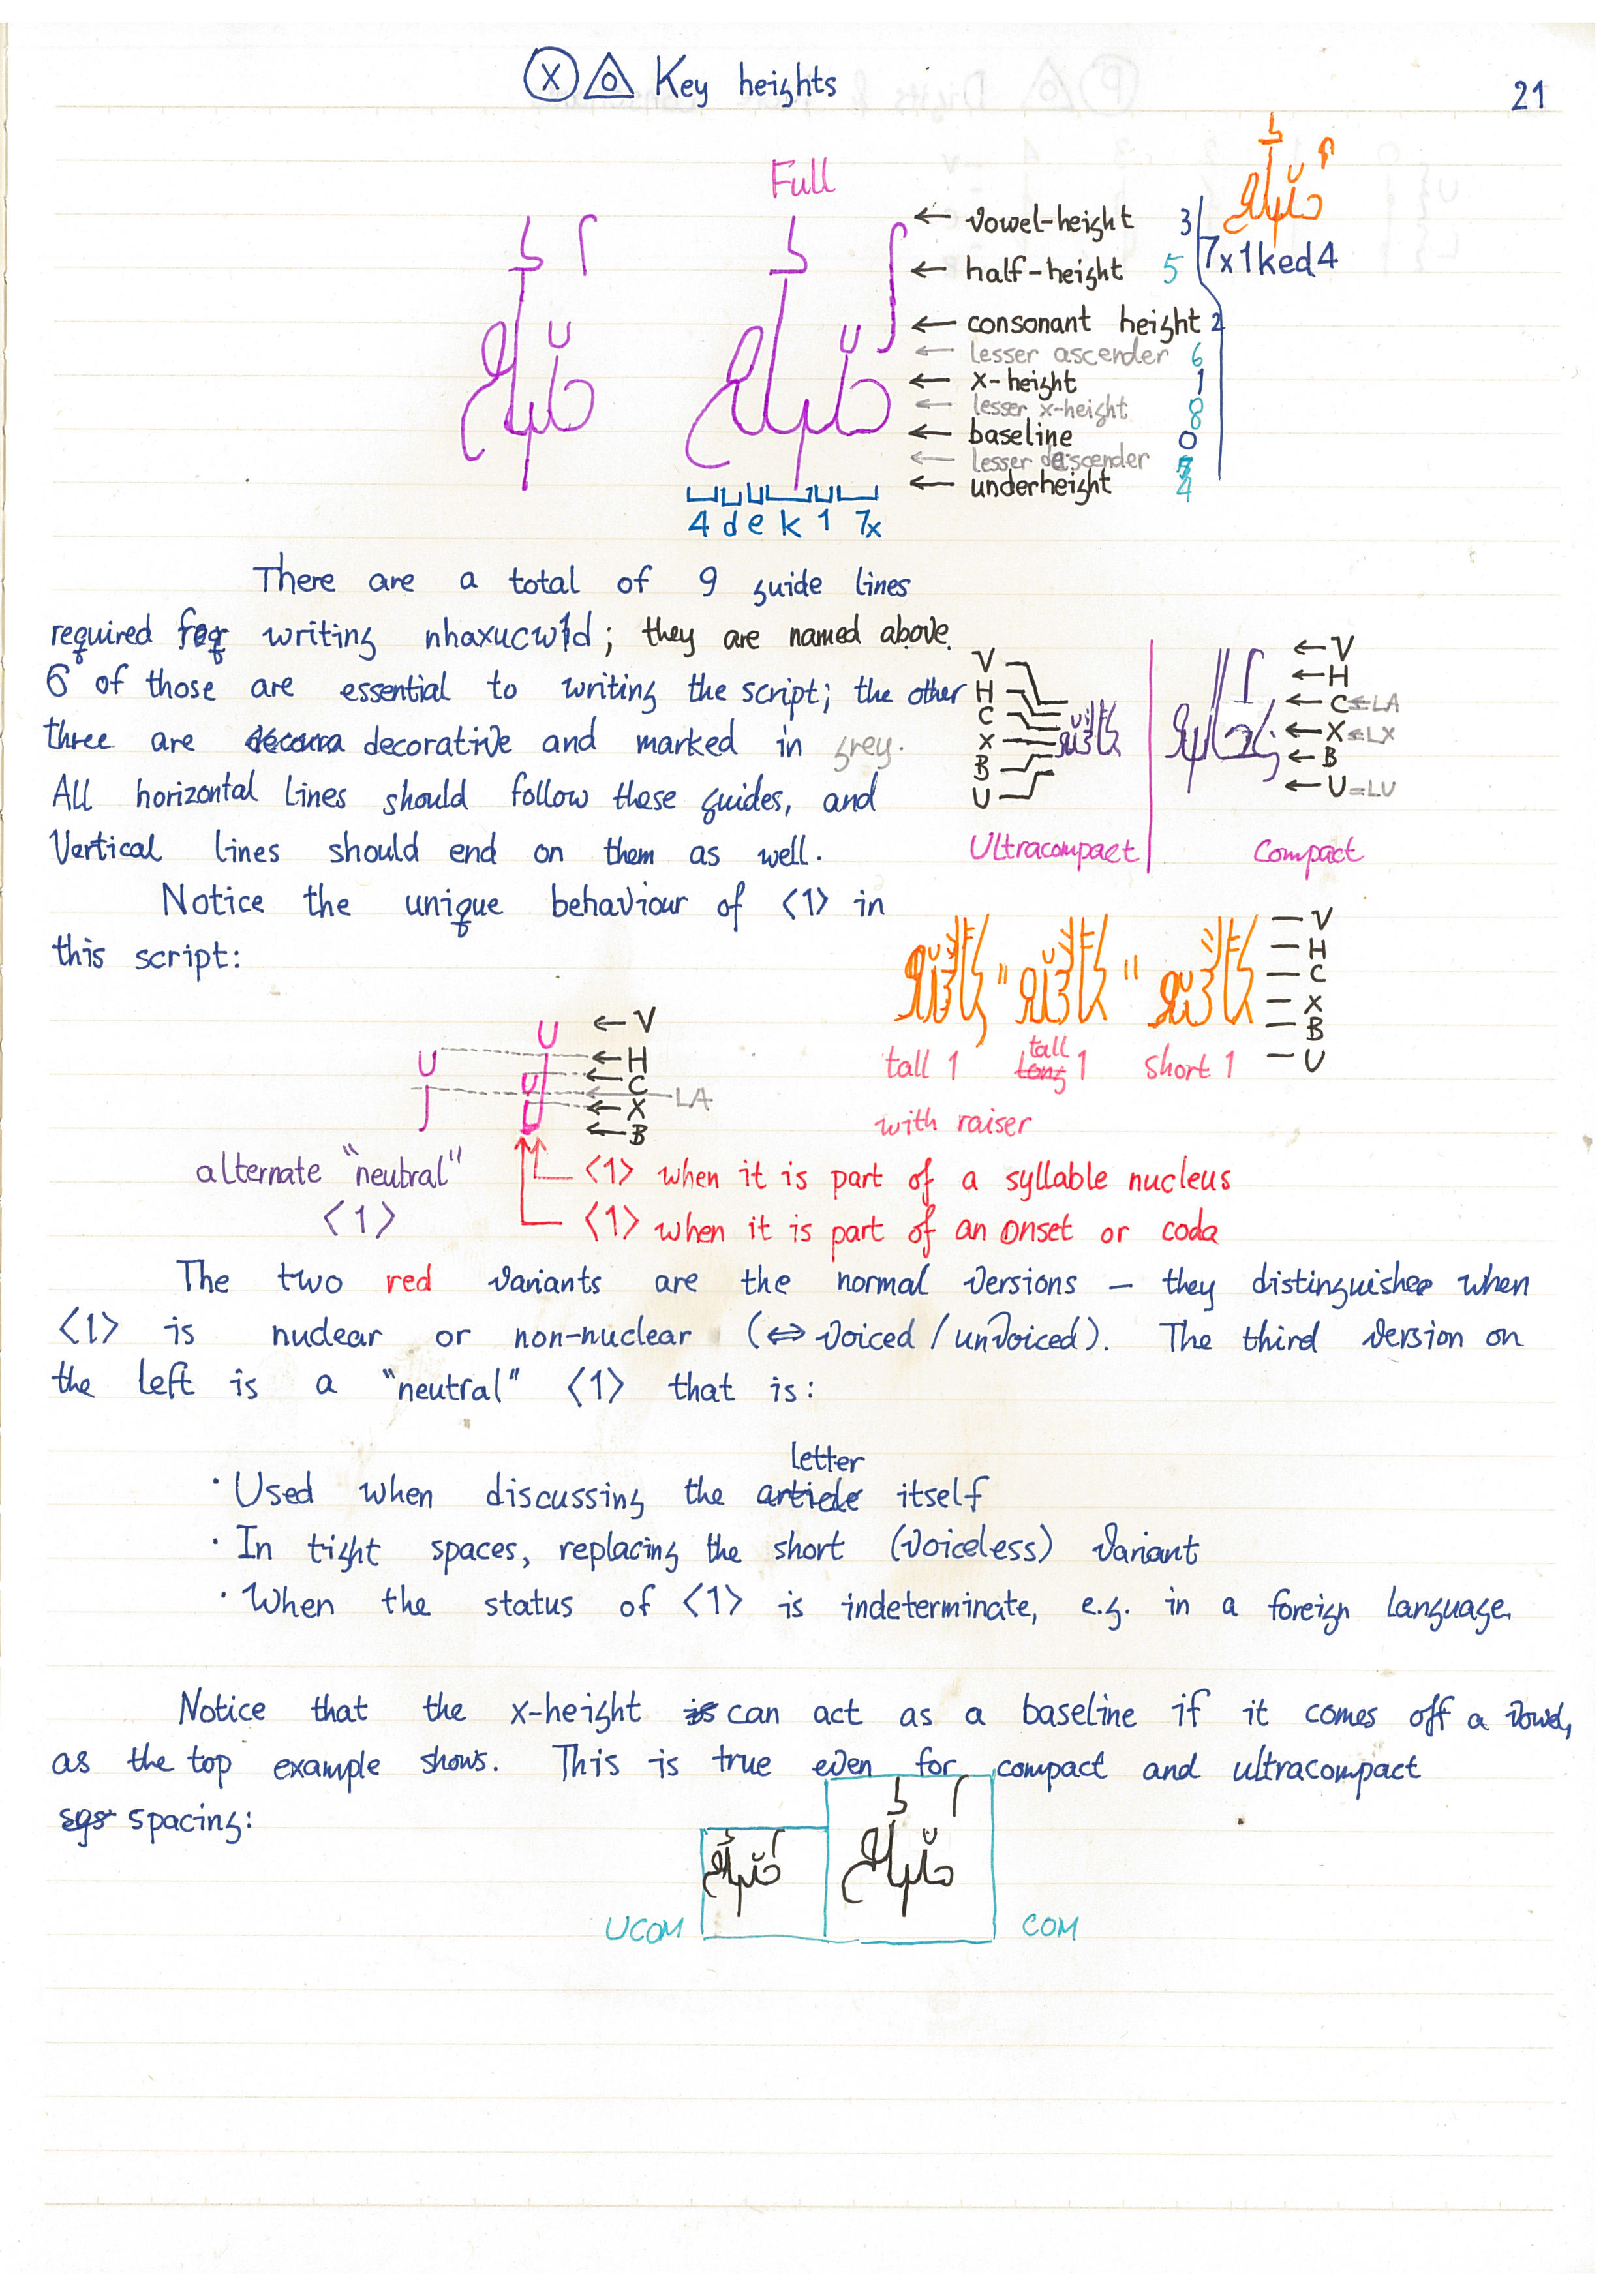 X Key heights
21
Full
vowel-height 3
half-height 5 7x1ked4
consonant height 2
lesser ascender 6
x-height 1
lesser x-height 8
baseline 0
lesser descender
underheight 4
4 d e k 1 7x
There are a total of 9 guide lines
required for writing nhaxucw1d; they are named above.
6 of those are essential to writing the script; the other
three are decorative and marked in grey.
All horizontal lines should follow these guides, and
Vertical lines should end on them as well.
V
H
C
X
B
U
Ultracompact
V
H
C = LA
X = LX
B
U = LU
Compact
Notice the unique behaviour of <1> in
this script:
" "
V
H
C
X
B
U
tall 1 tall 1 short 1
with raiser
V
H
C
LA
X
B
alternate "neutral"
<1>
<1> when it is part of a syllable nucleus
<1> when it is part of an onset or coda
The two red variants are the normal versions — they distinguishes when
<1> is nuclear or non-nuclear (⇔ voiced / unvoiced). The third version on
the left is a "neutral" <1> that is:
· Used when discussing the letter itself
· In tight spaces, replacing the short (voiceless) variant
· When the status of <1> is indeterminate, e.g. in a foreign language.
Notice that the x-height can act as a baseline if it comes off a vowel,
as the top example shows. This is true even for compact and ultracompact
spacing:
UCOM COM